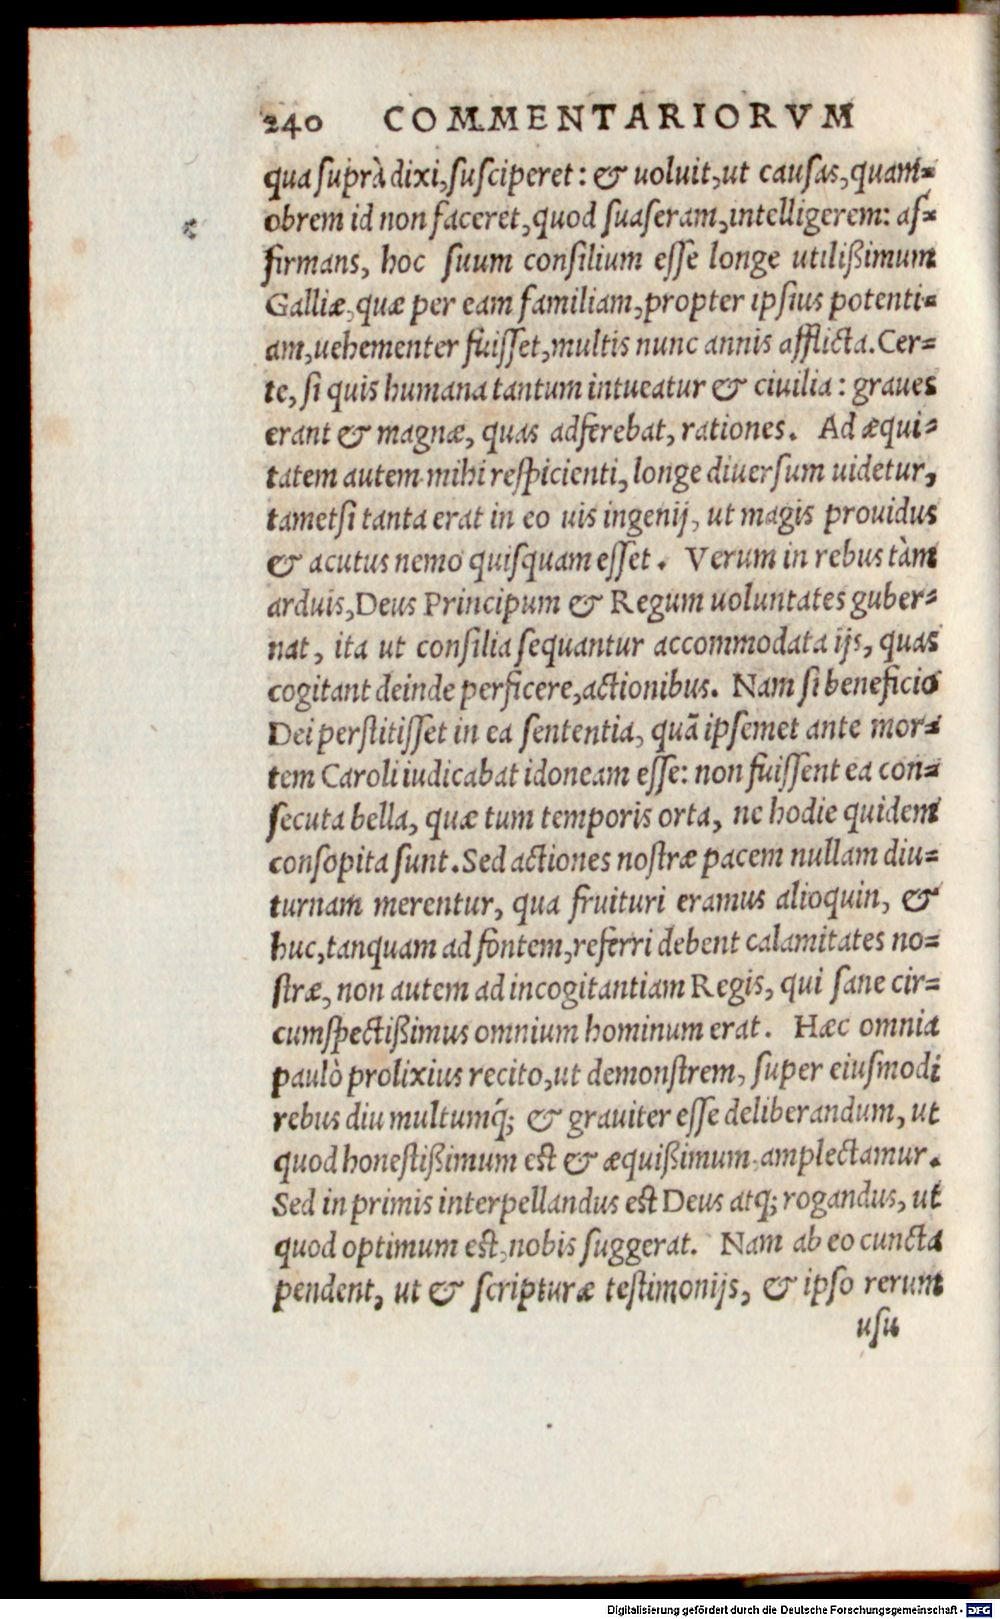 240 COMMENTARIORVM
qua suprà dixi, susciperet: & uoluit, ut causas, quam=
obrem id non faceret, quod suaseram, intelligerem: af=
firmans, hoc suum consilium esse longe utilißimum
Galliæ, quæ per eam familiam, propter ipsius potenti=
am, uehementer fuisset, multis nunc annis afflicta. Cer=
te, si quis humana tantum intueatur & ciuilia: graues
erant & magnæ, quas adferebat, rationes. Ad æqui=
tatem autem mihi respicienti, longe diuersum uidetur,
tametsi tanta erat in eo uis ingenij, ut magis prouidus
& acutus nemo quisquam esset. Verum in rebus tàm
arduis, Deus Principum & Regum uoluntates guber=
nat, ita ut consilia sequantur accommodata ijs, quas
cogitant deinde perficere, actionibus. Nam si beneficio
Dei perstitisset in ea sententia, quã ipsemet ante mor=
tem Caroli iudicabat idoneam esse: non fuissent ea con=
secuta bella, quæ tum temporis orta, ne hodie quidem
consopita sunt. Sed actiones nostræ pacem nullam diu=
turnam merentur, qua fruituri eramus alioquin, &
huc, tanquam ad fontem, referri debent calamitates no=
stræ, non autem ad incogitantiam Regis, qui sane cir=
cumspectißimus omnium hominum erat. Hæc omnia
paulò prolixius recito, ut demonstrem, super eiusmodi
rebus diu multumq́; & grauiter esse deliberandum, ut
quod honestißimum est & æquißimum, amplectamur.
Sed in primis interpellandus est Deus atq; rogandus, ut
quod optimum est, nobis suggerat. Nam ab eo cuncta
pendent, ut & scripturæ testimonijs, & ipso rerum
usu
Digitalisierung gefördert durch die Deutsche Forschungsgemeinschaft - DFG